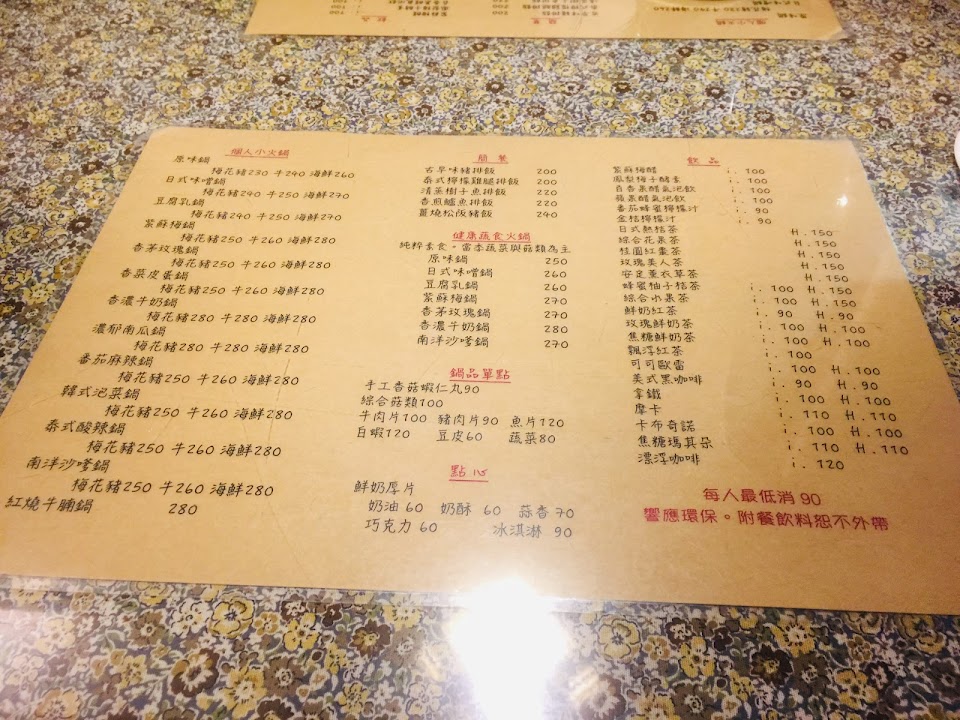 個人小火鍋
原味鍋
梅花豬230 牛240 海鮮260
日式味噌鍋
梅花豬240 牛250 海鮮270
豆腐乳鍋
梅花豬240 牛250 海鮮270
紫蘇梅鍋
梅花豬250 牛260 海鮮280
香茅玫瑰鍋
梅花豬250 牛260 海鮮280
香菜皮蛋鍋
梅花豬250 牛260 海鮮280
香濃牛奶鍋
梅花豬280 牛280 海鮮280
濃郁南瓜鍋
梅花豬280 牛280 海鮮280
番茄麻辣鍋
梅花豬250 牛260 海鮮280
韓式泡菜鍋
梅花豬250 牛260 海鮮280
泰式酸辣鍋
梅花豬250 牛260 海鮮280
南洋沙嗲鍋
梅花豬250 牛260 海鮮280
紅燒牛腩鍋 280
簡餐
古早味豬排飯 200
泰式檸檬雞腿排飯 200
清蒸樹子魚排飯 220
香煎鱸魚排飯 220
薑燒松阪豬飯 240
健康蔬食火鍋
純粹素食。當季蔬菜與菇類為主
原味鍋 250
日式味噌鍋 260
豆腐乳鍋 260
紫蘇梅鍋 270
香茅玫瑰鍋 270
香濃牛奶鍋 280
南洋沙嗲鍋 270
鍋品單點
手工香菇蝦仁丸90
綜合菇類100
牛肉片100 豬肉片90 魚片120
白蝦120 豆皮60 蔬菜80
點心
鮮奶厚片
奶油 60 奶酥 60 蒜香 70
巧克力 60 冰淇淋 90
飲品
紫蘇梅醋 i. 100
鳳梨梅子酵素 i. 100
百香果醋氣泡飲 i. 100
蘋果醋氣泡飲 i. 100
番茄蜂蜜檸檬汁 i. 90
金桔檸檬汁 i. 90
日式熱桔茶 H. 150
綜合花果茶 H. 150
桂圓紅棗茶 H. 150
玫瑰美人茶 H. 150
安定薰衣草茶 H. 150
蜂蜜柚子桔茶 i. 100 H. 150
綜合水果茶 i. 100 H. 150
鮮奶紅茶 i. 90 H. 90
玫瑰鮮奶茶 i. 100 H. 100
焦糖鮮奶茶 i. 100 H. 100
飄浮紅茶 i. 100
可可歐蕾 i. 100 H. 100
美式黑咖啡 i. 90 H. 90
拿鐵 i. 100 H. 100
摩卡 i. 110 H. 110
卡布奇諾 i. 100 H. 100
焦糖瑪其朵 i. 110 H. 110
漂浮咖啡 i. 120
每人最低消 90
響應環保。附餐飲料恕不外帶